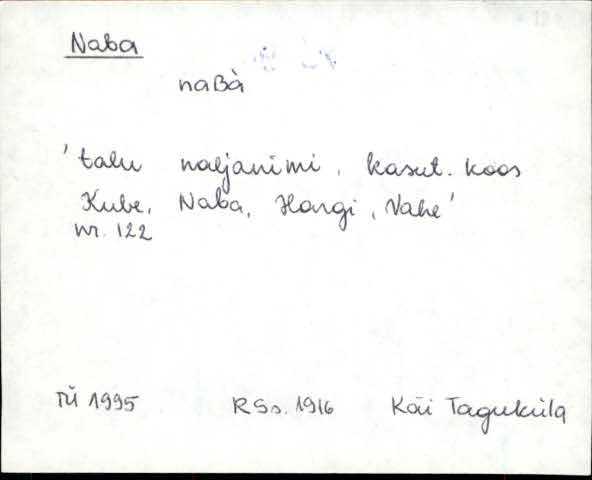 Naba
naBà
'talu naljanimi, kasut. koos
Kube, Naba, Hargi, Vahe'
nr. 122
TÜ 1995 RSs. 1916 Kai Taguküla